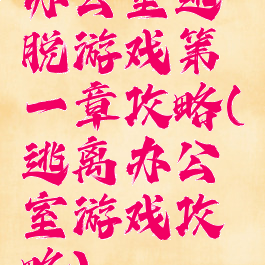 办公室逃
脱游戏第
一章攻略(
逃离办公
室游戏攻
略)